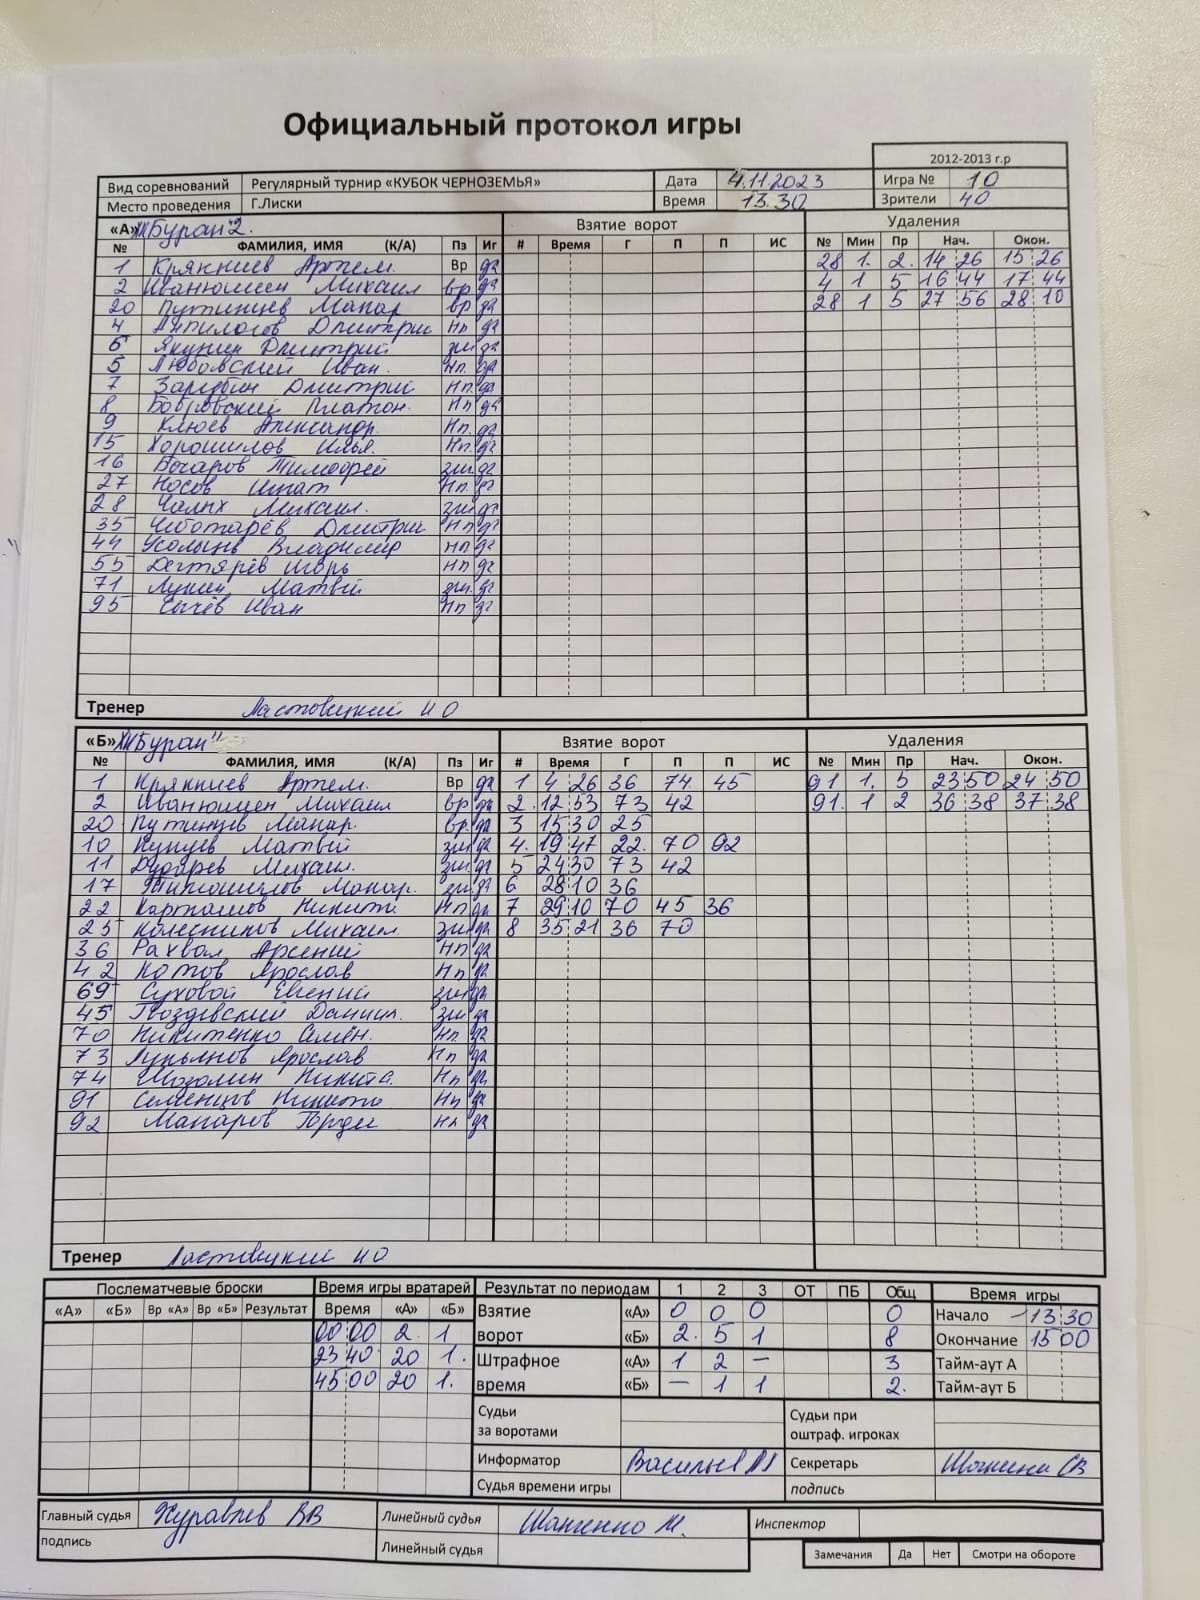 Официальный протокол игры
2012-2013 г.р
Вид соревнований Регулярный турнир «КУБОК ЧЕРНОЗЕМЬЯ» Дата 4.11.2023 Игра № 10
Место проведения Г.Лиски Время 13.30 Зрители 40
«А» ХК Буран 2. Взятие ворот Удаления
№ ФАМИЛИЯ, ИМЯ (К/А) Пз Иг # Время Г П П ИС № Мин Пр Нач. Окон.
1 Артем. Вр да 28 1. 2. 14 26 15 26
2 Михаил вр да 4 1 5 16 44 17 44
20 Путинцев Макар вр да 28 1 5 27 56 28 10
4 Дмитрий нп да
6 Якунин Дмитрий зщ да
5 Любовский Иван. нп. да
7 Зарубин Дмитрий нп. да
8 Бобровский Платон. нп да
9 Клюев Александр. нп. да
15 Хорошилов Илья. нп. да
16 Бочаров Тимофей зщ да
27 Носов Игнат нп. да
28 Чалых Михаил. зщ да
35 Чеботарёв Дмитрий нп да
44 Владимир нп да
55 Дегтярёв Игорь нп да
71 Лунин Матвей зщ. да
95 Иван нп да
Тренер Ластовецкий И О
«Б» ХК Буран" Взятие ворот Удаления
№ ФАМИЛИЯ, ИМЯ (К/А) Пз Иг # Время Г П П ИС № Мин Пр Нач. Окон.
1 Артем. Вр да 1 4 26 36 74 45 91 1. 5 23 50 24 50
2 Михаил вр да 2. 12 53 73 42 91. 1 2 36 38 37 38
20 Путинцев Макар. вр. да 3 15 30 25
10 Матвей зщ да 4. 19 47 22. 70 92
11 Дударев Михаил. зщ. да 5 24 30 73 42
17 Макар. зщ. да 6 28 10 36
22 Карташов Никита. нп да 7 29 10 70 45 36
25 Колесников Михаил. зщ да 8 35 21 36 70
36 Рахвал Арсений нп да
42 Котов Ярослав нп да
69 Суховой Евгений зщ да
45 Гвоздевский Даниил. зщ да
70 Никитенко Семён. нп. да
73 Лукьянов Ярослав нп да
74 Мозолин Никита. нп да
91 Семенцов Никита нп да
92 Макаров Гордей нп да
Тренер Ластовецкий И О
Послематчевые броски Время игры вратарей Результат по периодам 1 2 3 ОТ ПБ Общ Время игры
«А» «Б» Вр «А» Вр «Б» Результат Время «А» «Б» Взятие «А» 0 0 0 0 Начало 13 30
00 00 2. 1 ворот «Б» 2. 5 1 8 Окончание 15 00
23 40 20 1. Штрафное «А» 1 2 – 3 Тайм-аут А
45 00 20 1. время «Б» – 1 1 2. Тайм-аут Б
Судьи за воротами Судьи при оштраф. игроках
Информатор Васильев Секретарь
Судья времени игры подпись
Главный судья Журавлев ВВ Линейный судья Шанченко М. Инспектор
подпись Линейный судья Замечания Да Нет Смотри на обороте